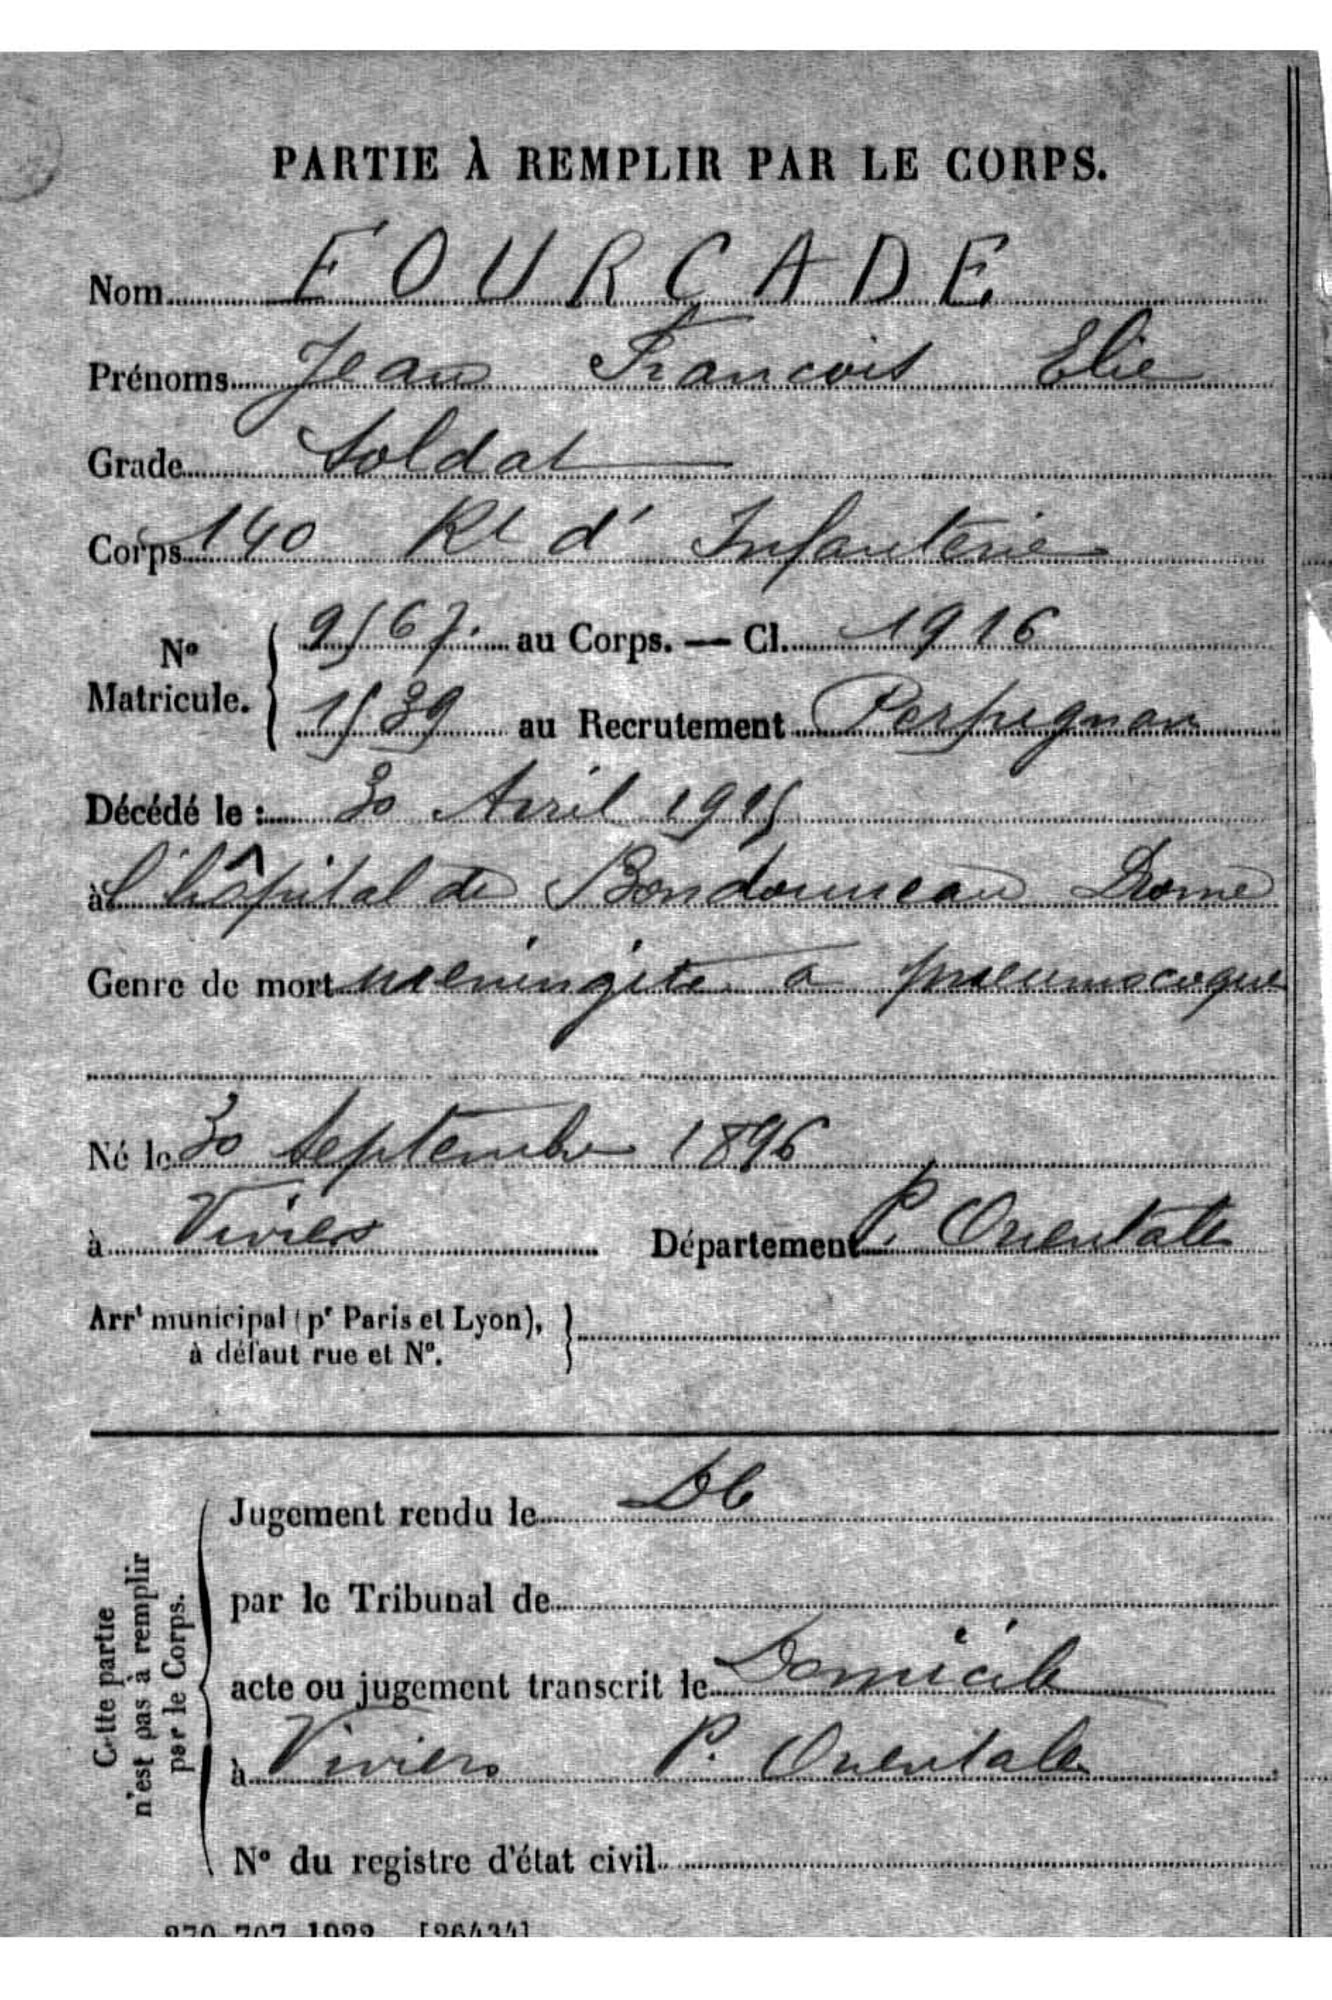 PARTIE À REMPLIR PAR LE CORPS.
Nom FOURCADE
Prénoms Jean Francois Elie
Grade Soldat
Corps 140 Rt d' Infanterie
No
Matricule.
9567. au Corps. — Cl. 1916
1539 au Recrutement Perpignan
Décédé le : 30 Avril 1915
à l'hôpital de Bondonneau Drome
Genre de mort meningite a pneumocoque
Né le 30 Septembre 1896
à Viviers Département P. Orientales
Arrt municipal (pr Paris et Lyon),
à défaut rue et No.
Cette partie
n'est pas à remplir
par le Corps.
Jugement rendu le
par le Tribunal de
acte ou jugement transcrit le Domicile
à Viviers P. Orientales
No du registre d'état civil
270-707-1922. [26434]